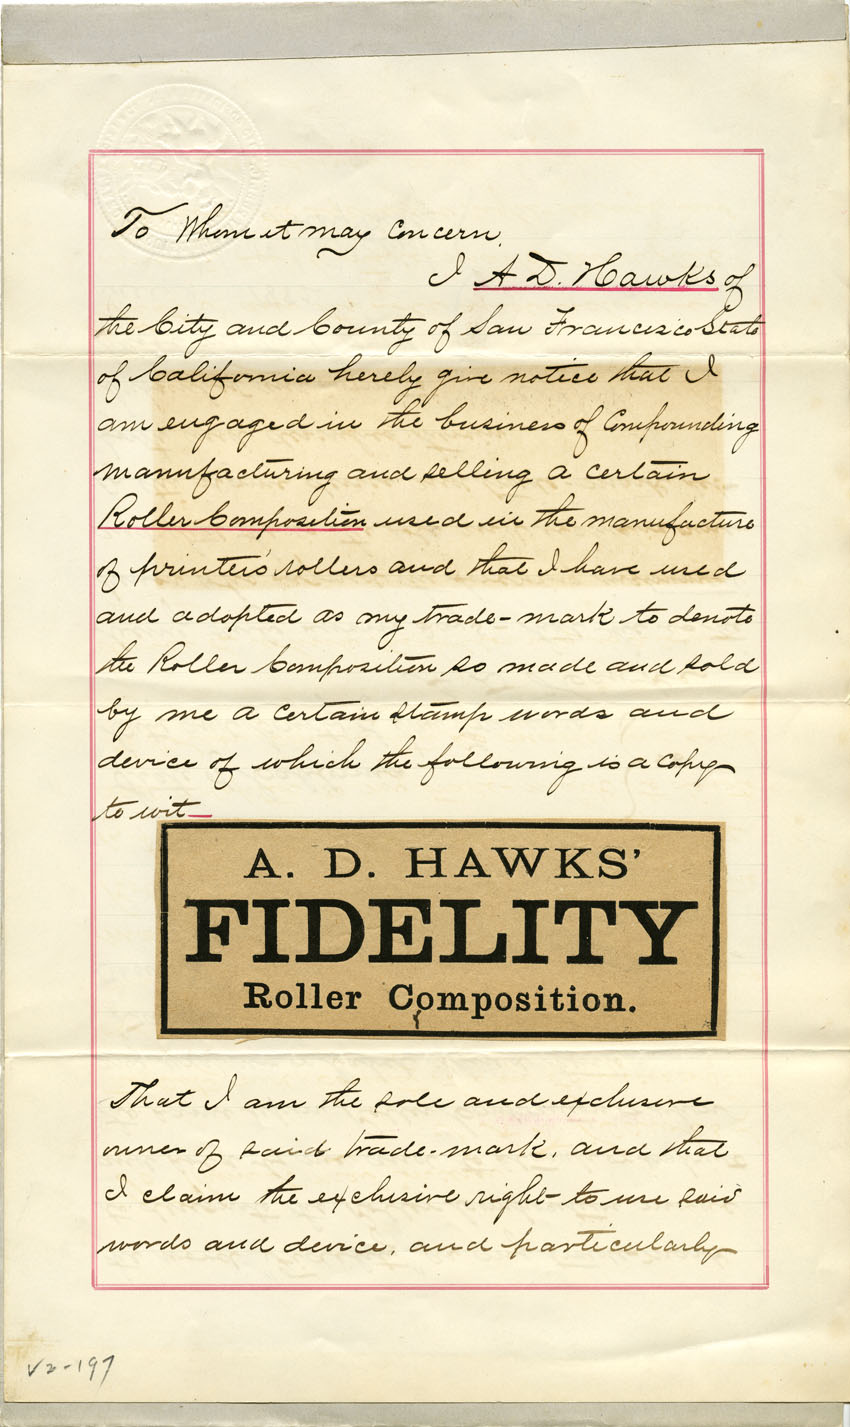 To Whom it may Concern,
I A D. Hawks of
the City and County of San Francisco State
of California hereby give notice that I
am engaged in the business of Compounding
manufacturing and selling a certain
Roller Composition used in the manufacture
of printer's rollers and that I have used
and adopted as my trade-mark to denote
the Roller Composition so made and sold
by me a certain stamp words and
device of which the following is a copy
to wit
A. D. HAWKS'
FIDELITY
Roller Composition.
That I am the sole and exclusive
owner of said trade-mark, and that
I claim the exclusive right to use said
words and device, and particularly
V2-197